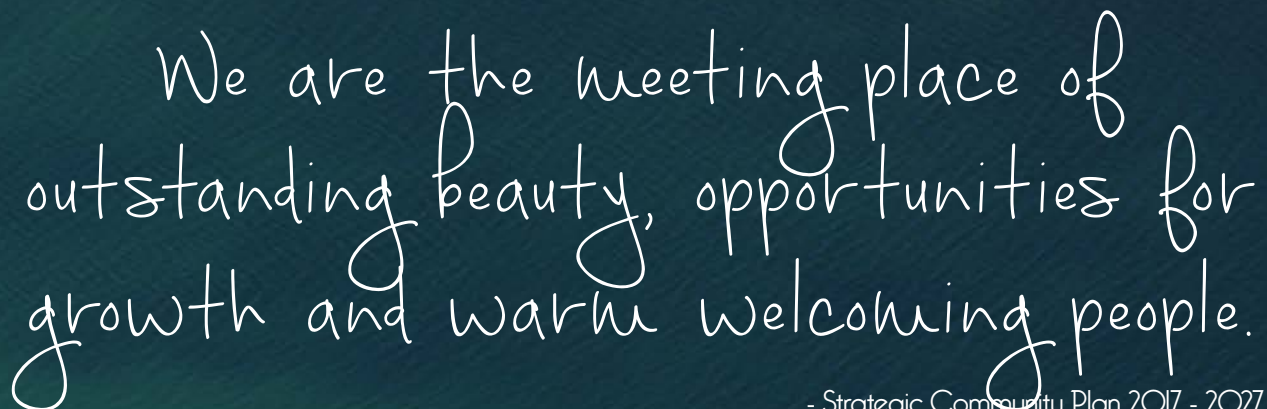 We are the meeting place of
outstanding beauty, opportunities for
growth and warm welcoming people.
- Strategic Community Plan 2017 - 2027